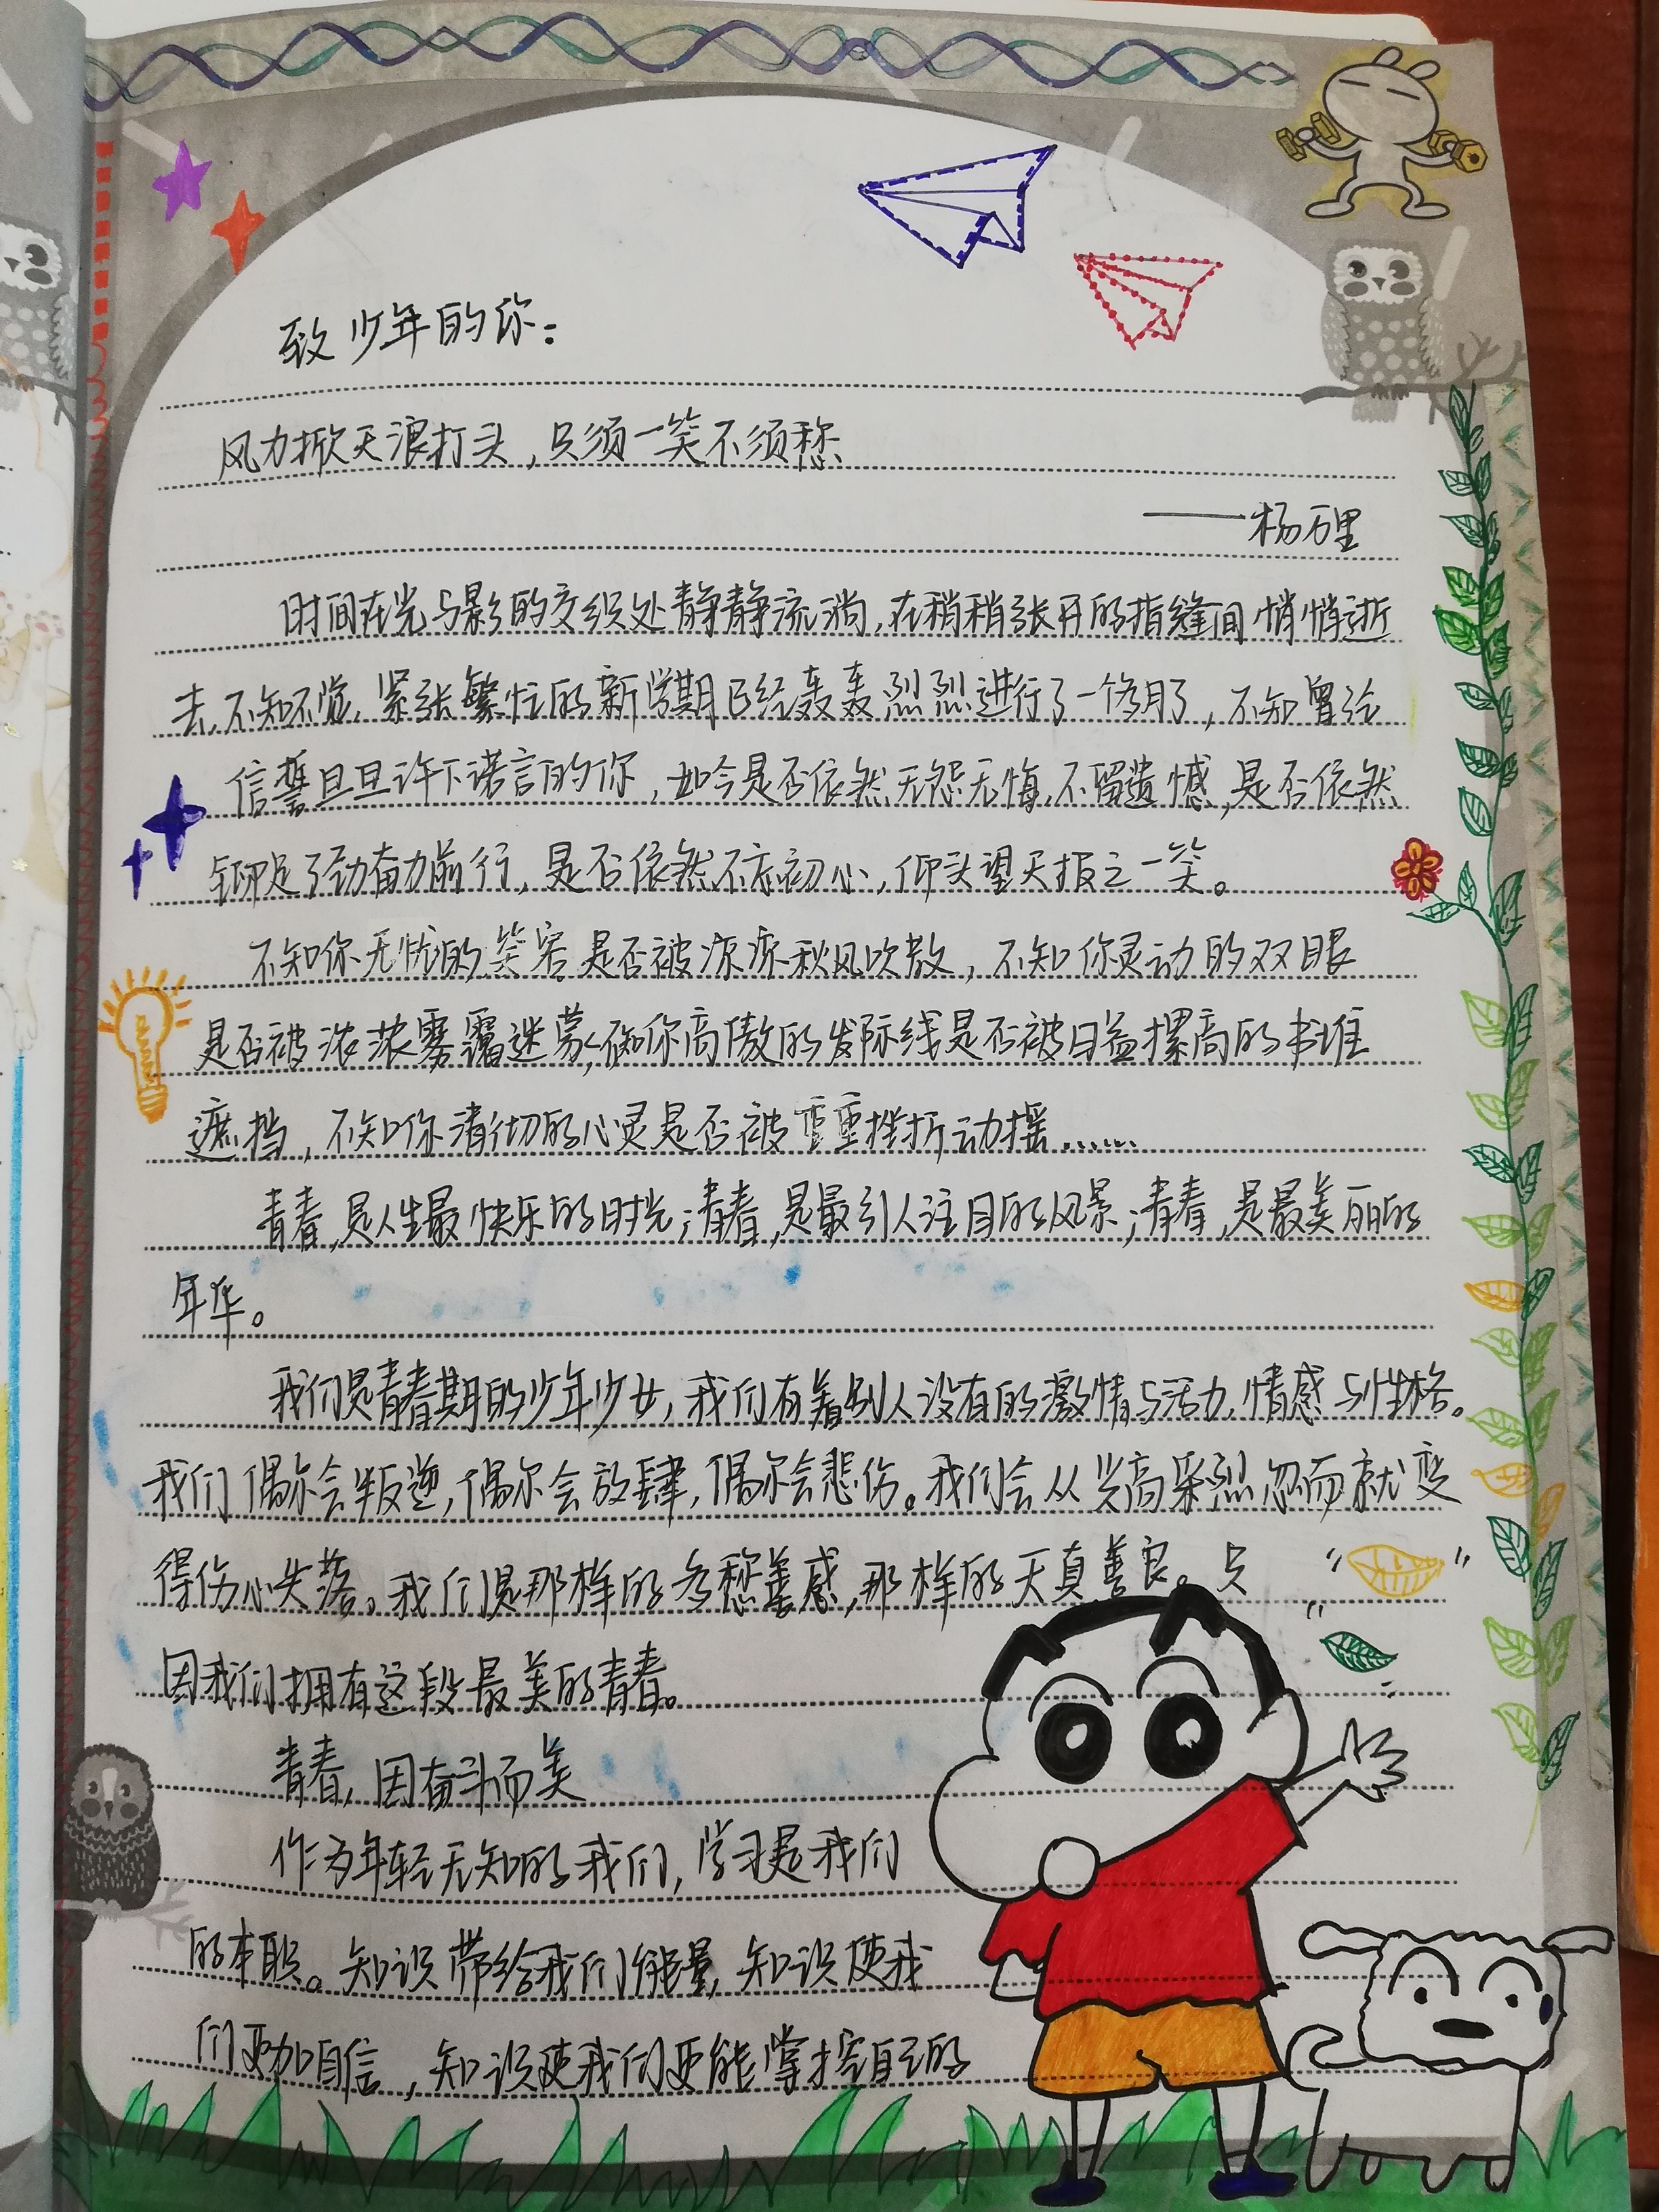 致少年的你：
风力掀天浪打头，只须一笑不须愁
——杨万里
时间在光与影的交织处静静流淌，在稍稍张开的指缝间悄悄逝
去，不知不觉，紧张繁忙的新学期已经轰轰烈烈进行了一个多月了，不知曾经
信誓旦旦许下诺言的你，如今是否依然无怨无悔，不留遗憾，是否依然
铆足了劲奋力前行，是否依然不忘初心，仰头望天报之一笑。
不知你无忧的笑容是否被凉凉秋风吹散，不知你灵动的双眼
是否被浓浓雾霭迷蒙，不知你高傲的发际线是否被日益摞高的书堆
遮挡，不知你清彻的心灵是否被重重挫折动摇……
青春，是人生最快乐的时光；青春，是最引人注目的风景；青春，是最美丽的
年华。
我们是青春期的少年少女，我们有着别人没有的激情与活力，情感与性格。
我们偶尔会叛逆，偶尔会放肆，偶尔会悲伤。我们会从兴高采烈忽而就变
得伤心失落。我们是那样的多愁善感，那样的天真善良。只
因我们拥有这段最美的青春。
青春，因奋斗而美
作为年轻无知的我们，学习是我们
的本职。知识带给我们能量，知识使我
们更加自信，知识使我们更能掌控自己的